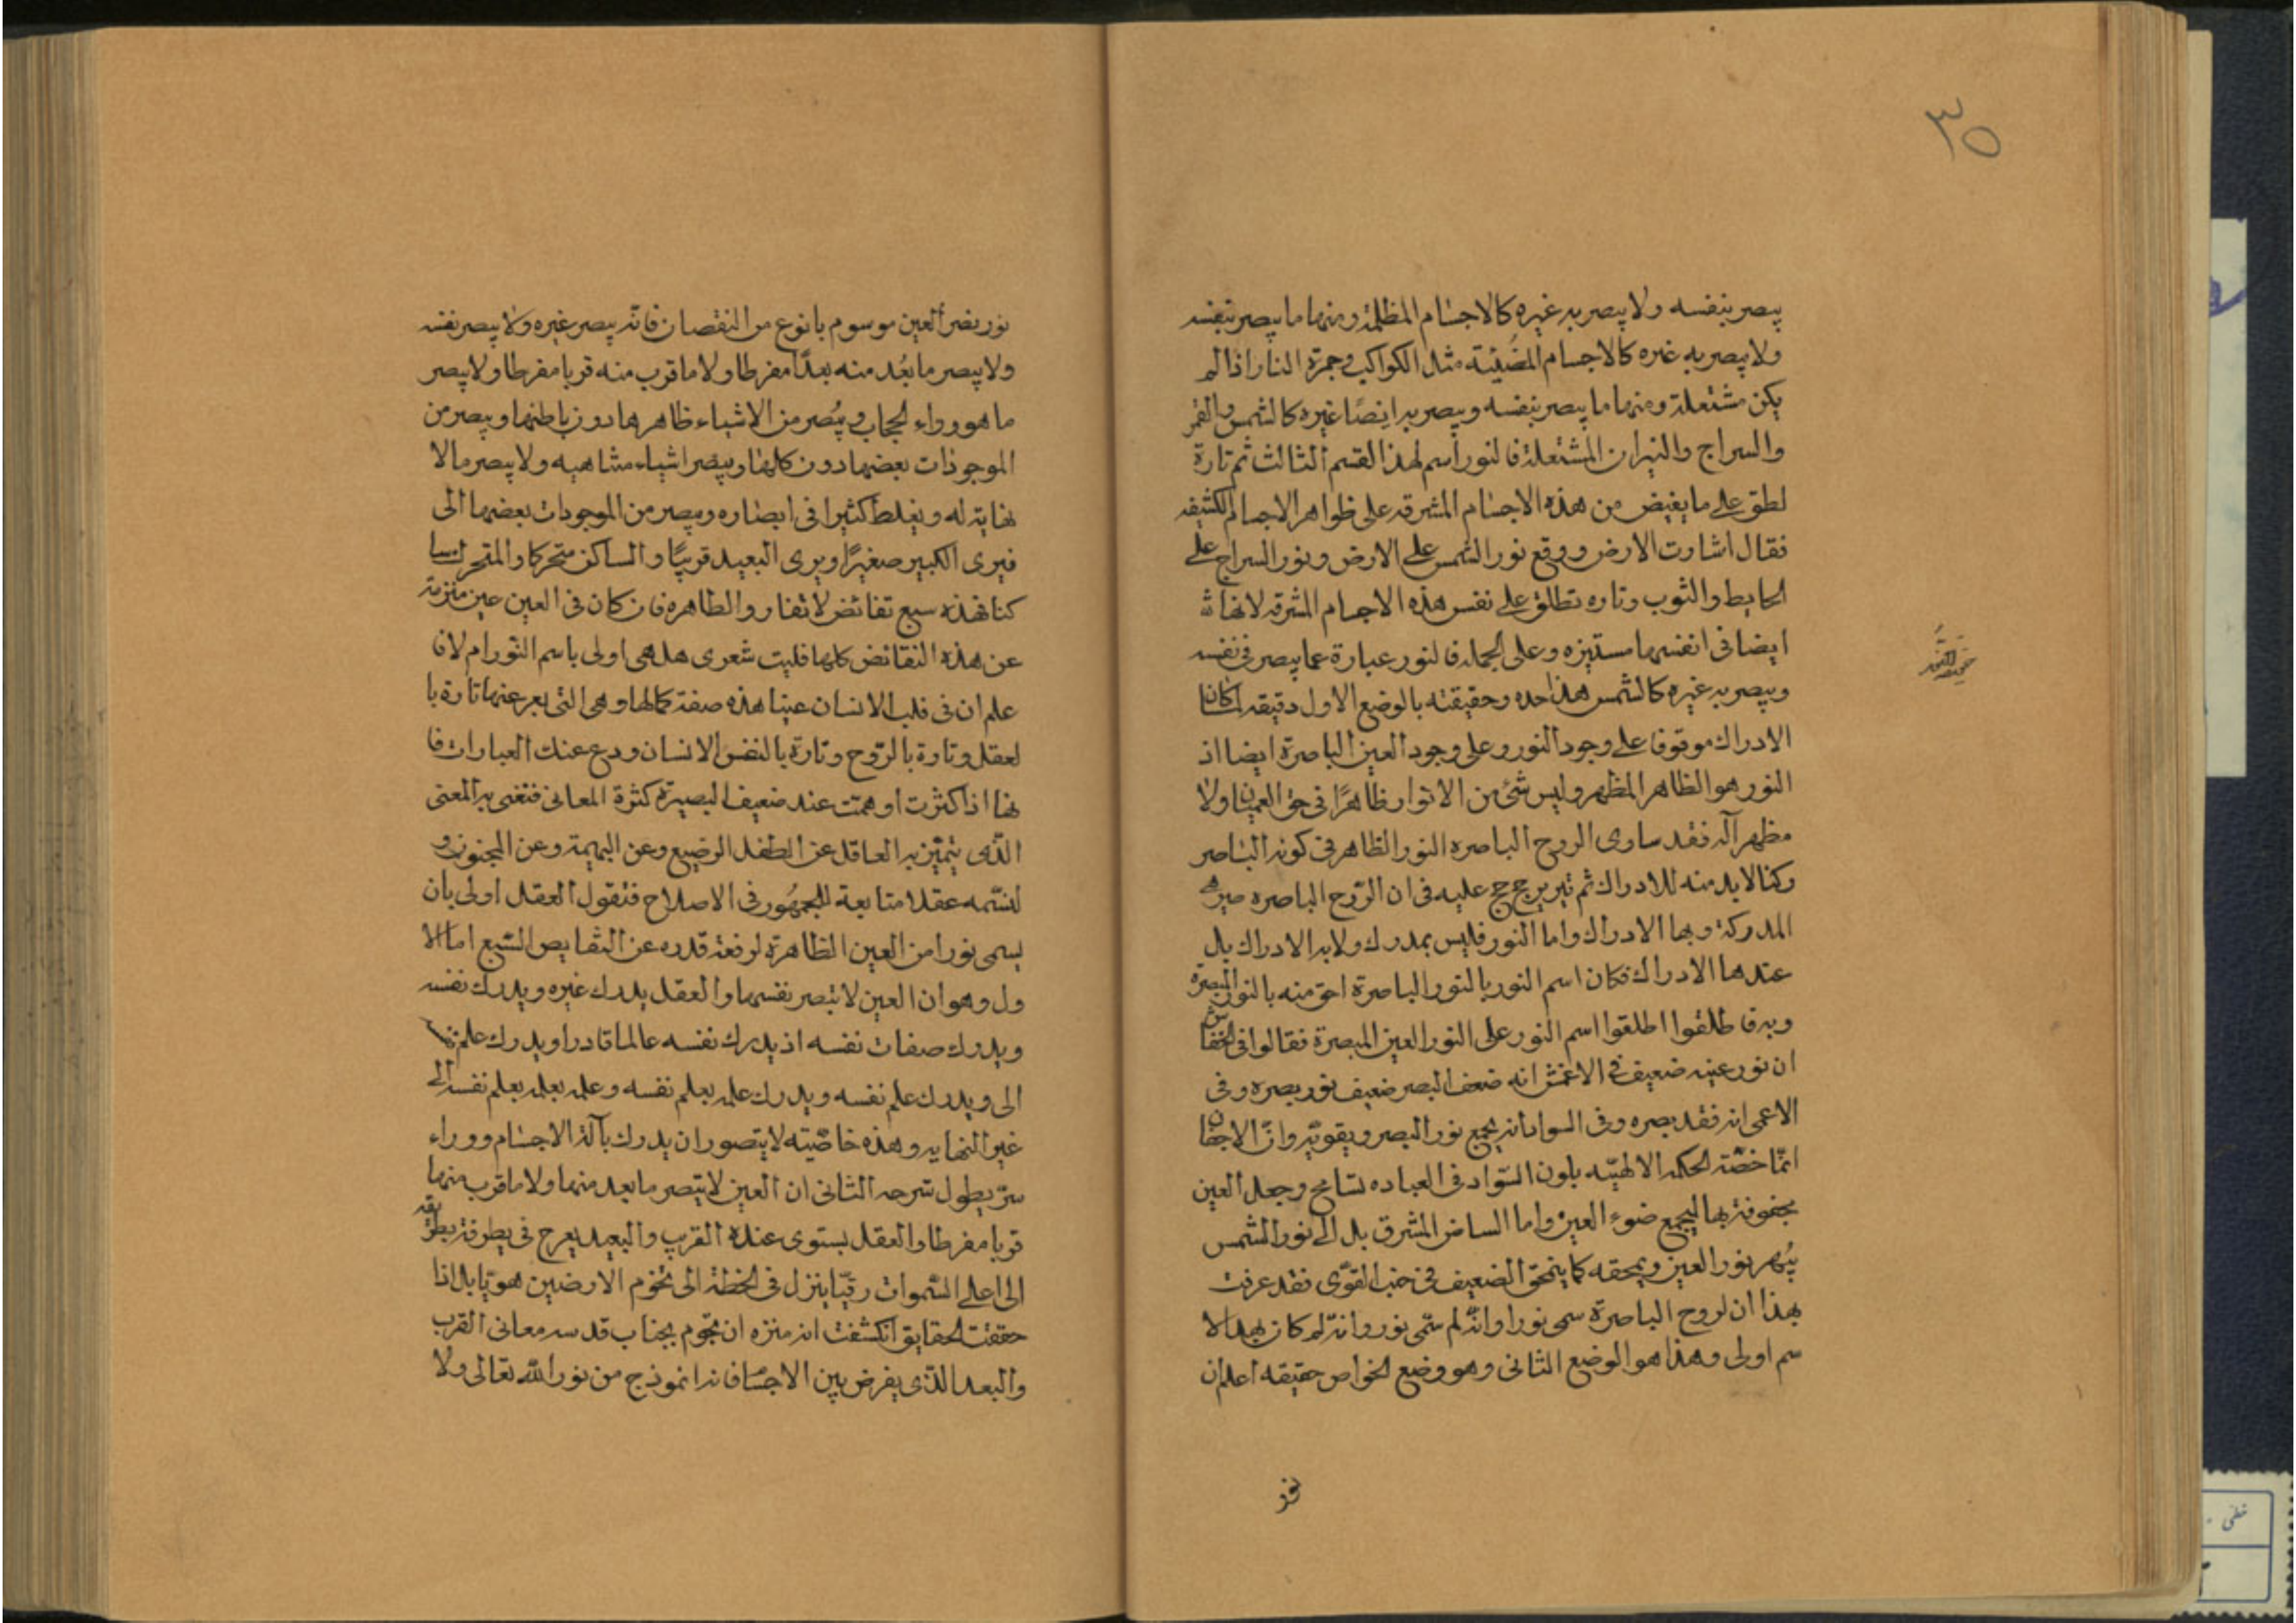 ٣٥
يبصر بنفسه ولا يبصر به غيره كالاجسام المظلمة ومنها ما يبصر بنفسه
ولا يبصر به غيره كالاجسام المضيئة مثل الكواكب وجمرة النار اذا لم
يكن مشتعلة ومنها ما يبصر بنفسه ويبصر به ايضًا غيره كالشمس والقمر
والسراج والنيران المشتعلة فالنور اسم لهذا القسم الثالث ثم تارة
لطق على ما يفيض من هذه الاجسام المشرقه على ظواهر الاجسام الكثيفه
فقال اشارت الارض ووقع نور الشمس على الارض ونور السراج على
الحايط والثوب وتاره تطلق على نفس هذه الاجسام المشرقه لانها
ايضا فى انفسها مستنيره وعلى الجملة فالنور عبارة عما يبصر فى نفسه
ويبصر به غيره كالشمس هذا حده وحقيقته بالوضع الاول دقيقه لما كان
الادراك موقوفا على وجود النور وعلى وجود العين الباصرة ايضا اذ
النور هو الظاهر المظهر وليس شئ من الانوار ظاهرًا فى حق العميان ولا
مظهرا له فقد ساوى الروح الباصره النور الظاهر فى كونه الباصر
ركنا لا بد منه للادراك ثم عليه فى ان الرّوح الباصره هى
المدركة وبها الادراك واما النور فليس بمدرك ولا به الادراك بل
عندها الادراك فكان اسم النور بالنور الباصرة احق منه بالنور المبصرة
اطلقوا اسم النور على النور العين المبصرة فقالوا فى الخفاش
ان نور عينه ضعيف فى الاعمش انه ضعف البصر ضعيف نور بصره وفى
الاعمى انه فقد بصره وفى السواد انه يجمع نور البصر ويقويّه وانّ الاجفان
انمّا خصّته الحكمه الالهيّه بلون السّواد فى العباده تسامح وجعل العين
محفوفة بها ليجمع ضوء العين واما البياض المشرق بل الى نور الشمس
يبهر نور العين ويمحقه كما ينمحق الضعيف فى جنب القوّى فقد عرفت
بهذا ان لروح الباصرة سمى نورا وانّه لم سمّى نور وانّه لم كان بهذا الا
سم اولى وهذا هو الوضع الثانى وهو وضع الخواص حقيقه اعلم ان
نور
حقيقة النور
نور بصر العين موسوم بانوع من النقصان فانّه يبصر غيره ولا يبصر نفسه
ولا يبصر ما بعُد منه بعدًا مفرطا ولا ما قرب منه قربا مفرطا ولا يبصر
ما هو وراء الحجاب ويُبصر من الاشياء ظاهرها دون باطنها ويبصر من
الموجودات بعضها دون كلها ويبصر اشياء متناهيه ولا يبصر ما لا
نهايه له ويغلط كثيرا فى ابصاره ويبصر من الموجودات بعضها الى
فيرى الكبير صغيرًا ويرى البعيد قريبًا والساكن متحركا والمتحرك سا
كنا فهذه سبع نقائض لا تفار والظاهره فان كان فى العين عين منزهة
عن هذه النقائض كلها فليت شعرى هل هى اولى باسم النّور ام لا فا
علم ان فى قلب الانسان عينا هذه صفة كمالها وهى التى يعبر عنها تارة با
لعقل وتارة بالرّوح وتارة بالنفس الانسان ودع عنك العبارات فا
نها اذا كثرت اوهمت عند ضعيف البصيرة كثرة المعانى فنعنى به المعنى
الذّى يتميّز به العاقل عن الطفل الرضيع وعن البهيمة وعن المجنون و
لنسّمه عقلا متابعة للجمهُور فى الاصلاح فنقول العقل اولى بان
يسمى نورا من العين الظاهرة لرفعة قدره عن النقايص السّبع اما الا
ول وهو ان العين لا تبصر نفسها والعقل يدرك غيره ويدرك نفسه
ويدرك صفات نفسه اذ يدرك نفسه عالما قادرا ويدرك علم
الى ويدرك علم نفسه ويدرك علمه بعلم نفسه وعلمه بعلمه بعلم نفسه الى
غير النهايه وهذه خاصّيته لا يتصور ان يدرك بآلة الاجسام ووراء
سرّ يطول شرحه الثانى ان العين لا يبصر ما بعد منها ولا ما قرب منها
قربا مفرطا والعقل يستوى عنده القرب والبعيد يعرج فى
الى اعلى السّموات رقيّا ينزل فى لحظة الى تخوم الارضين هويّا بل اذا
حققت الحقايق انكشفت انه منزه ان يحوم بجناب قدسه معانى القرب
والبعد الذّى يفرض بين الاجسام فانه انموذج من نور الله تعالى ولا